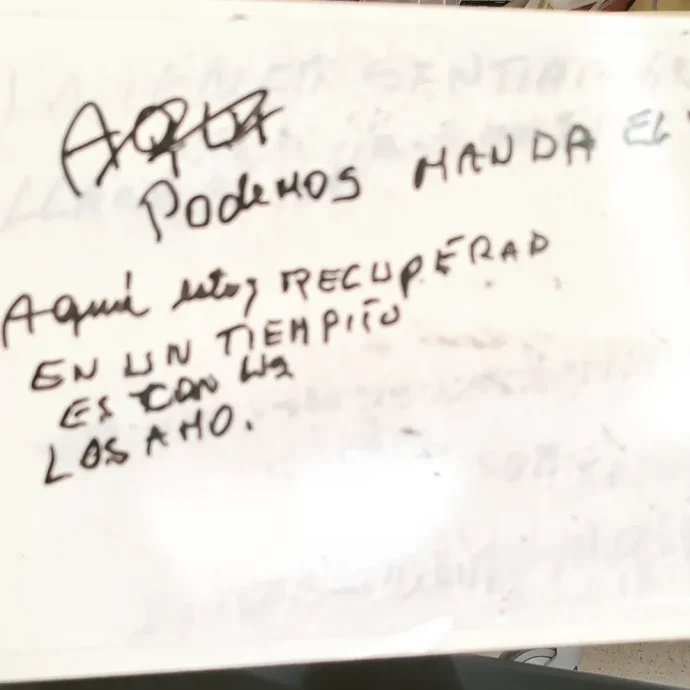 Podemos MANDA EL
Aquí estoy RECUPERAD
EN UN TIEMPITO
ES CON
LOS AMO.